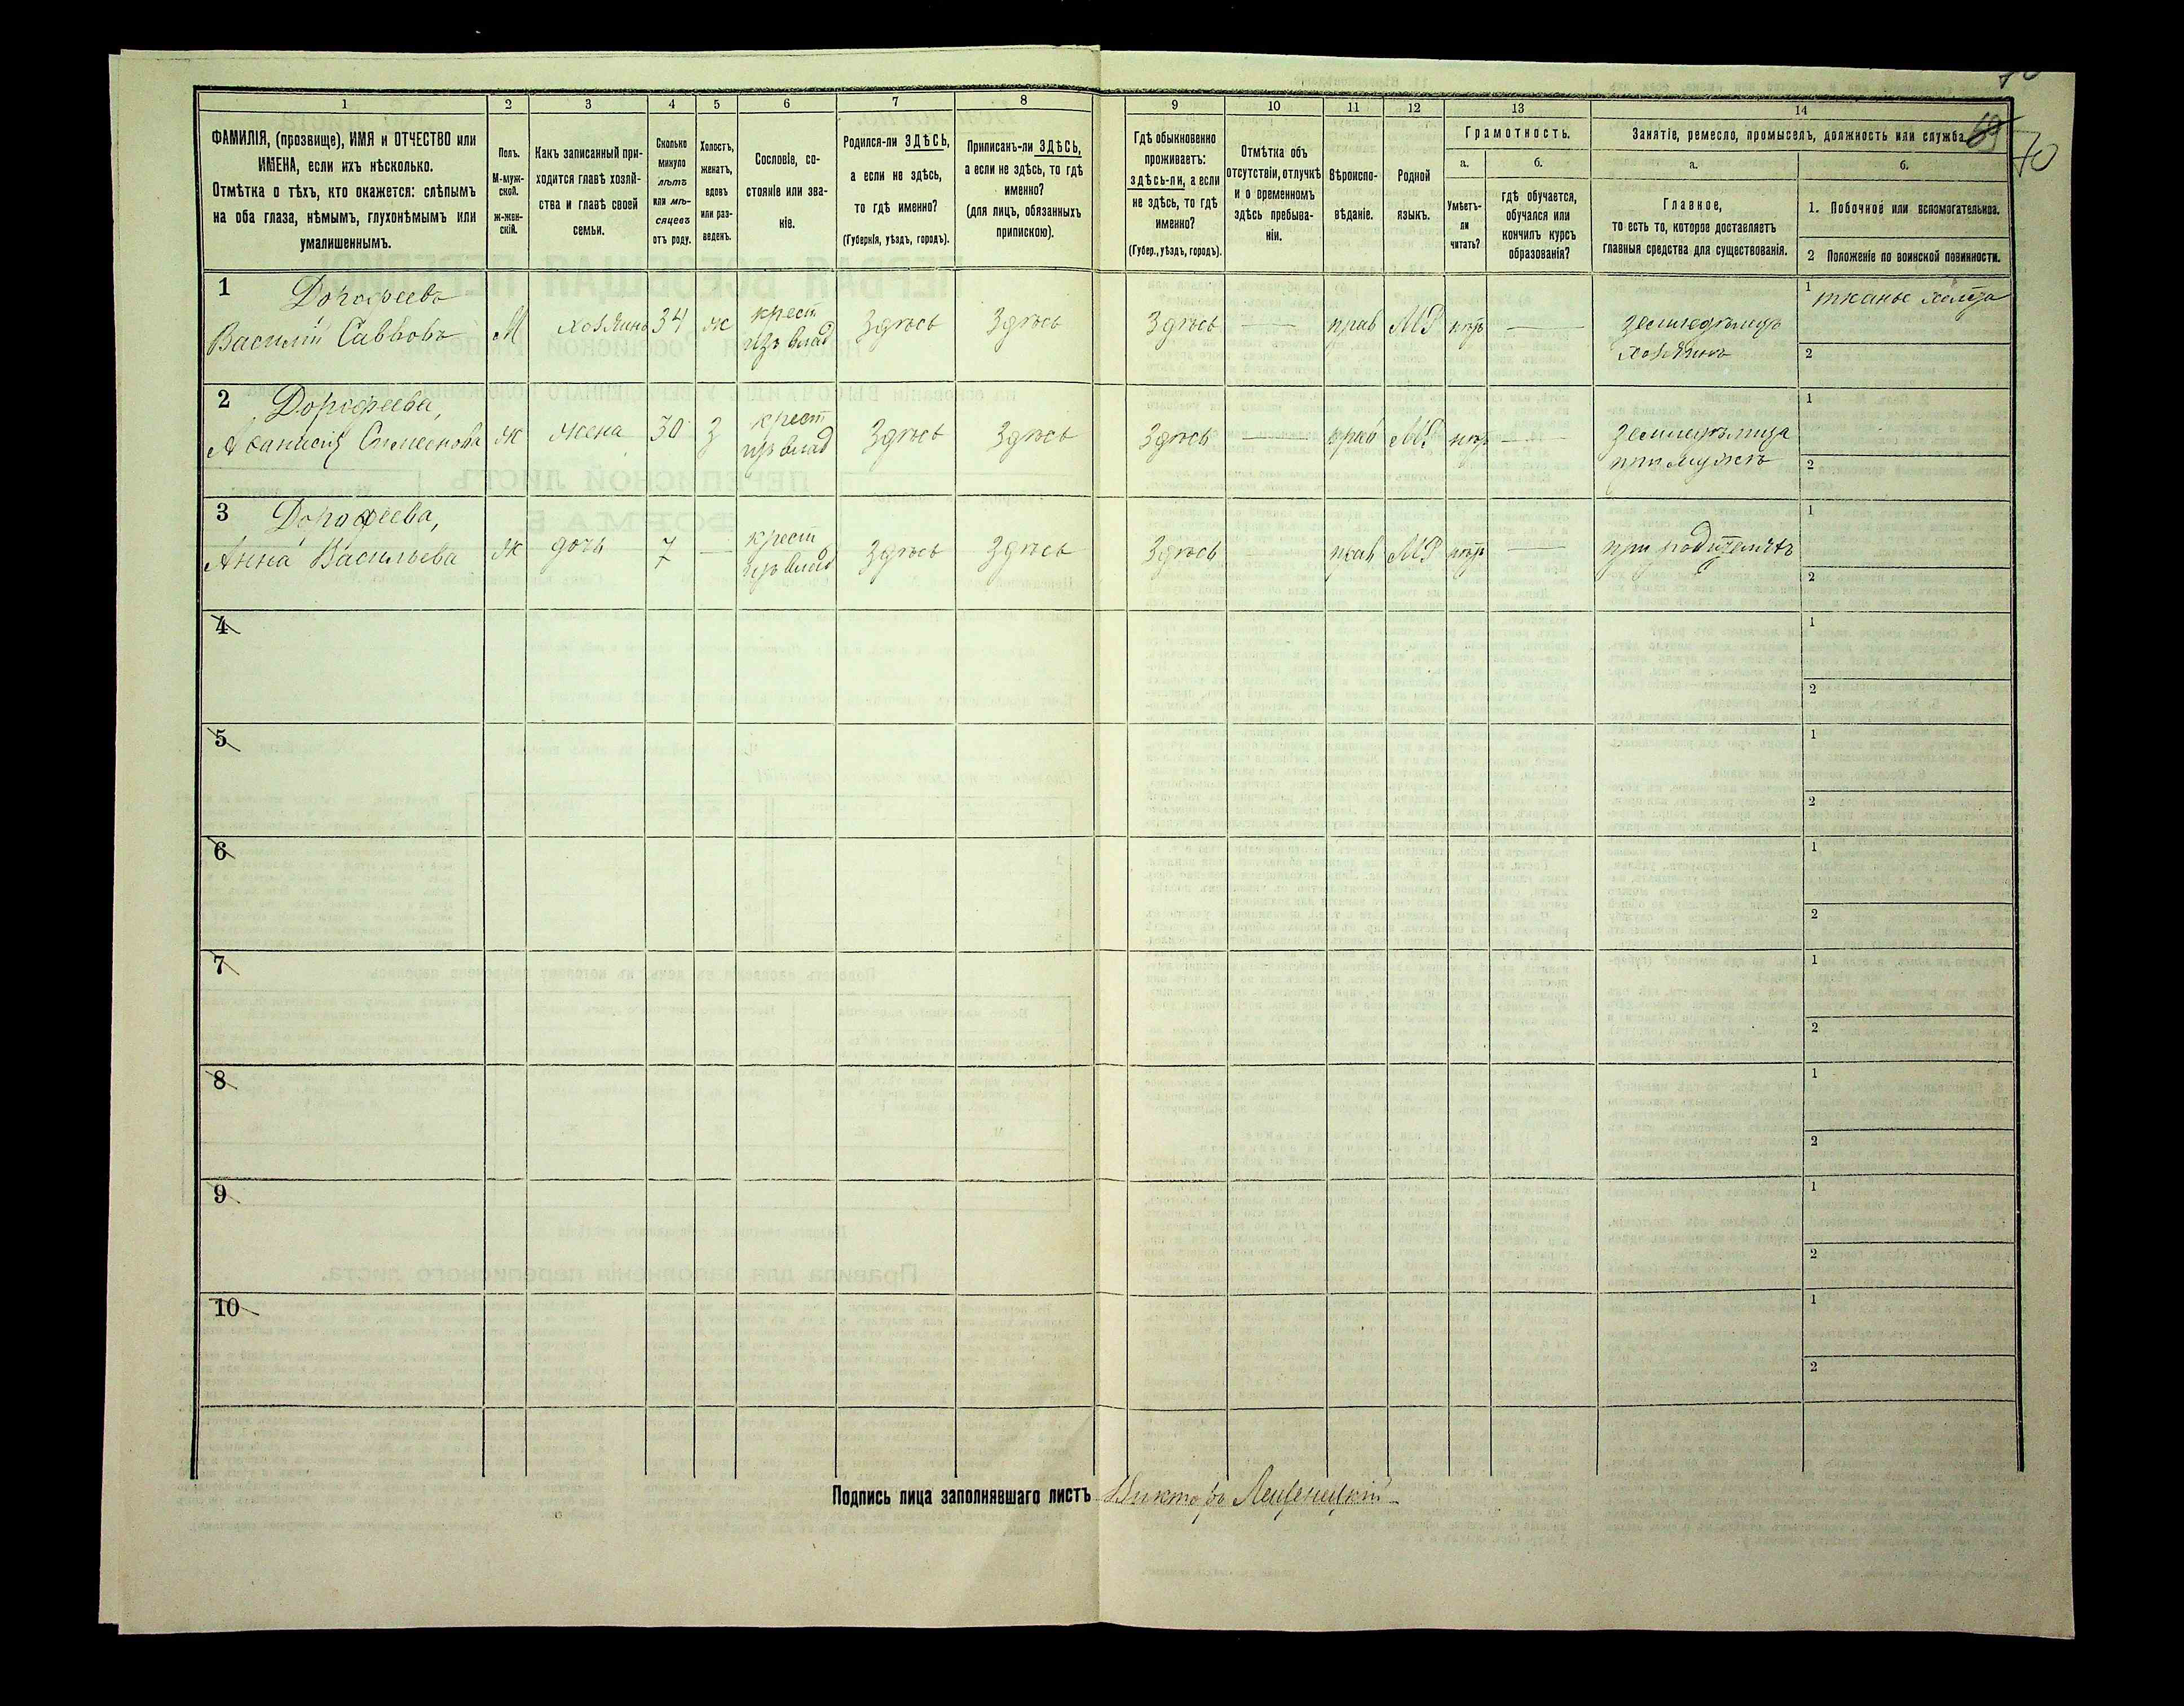 1 2 3 4 5 6 7 8 9 10 11 12 13 14
ФАМИЛІЯ, (прозвище), ИМЯ и ОТЧЕСТВО или
ИМЕНА, если ихъ нѣсколько.
Отмѣтка о тѣхъ, кто окажется: слѣпымъ
на оба глаза, нѣмымъ, глухонѣмымъ или
умалишеннымъ.
Полъ.
М-муж-
ской.
Ж-жен-
скій.
Какъ записанный при-
ходится главѣ хозяй-
ства и главѣ своей
семьи.
Сколько
минуло
лѣтъ
или мѣ-
сяцевъ
отъ роду.
Холостъ,
женатъ,
вдовъ
или раз-
веденъ.
Сословіе, со-
стояніе или зва-
ніе.
Родился-ли ЗДѢСЬ,
а если не здѣсь,
то гдѣ именно?
(Губернія, уѣздъ, городъ).
Приписанъ-ли ЗДѢСЬ,
а если не здѣсь, то гдѣ
именно?
(для лицъ, обязанныхъ
припискою).
Гдѣ обыкновенно
проживаетъ:
здѣсь-ли, а если
не здѣсь, то гдѣ
именно?
(Губер., уѣздъ, городъ).
Отмѣтка объ
отсутствіи, отлучкѣ
и о временномъ
здѣсь пребыва-
ніи.
Вѣроиспо-
вѣданіе.
Родной
языкъ.
Грамотность.
а.
Умѣетъ-
ли
читать?
б.
гдѣ обучается,
обучался или
кончилъ курсъ
образованія?
Занятіе, ремесло, промыселъ, должность или служба.
69
70
а.
Главное,
то есть то, которое доставляетъ
главныя средства для существованія.
б.
1. Побочное или вспомогательное.
2 Положеніе по воинской повинности.
1 Дорофеевъ
Василій Саввовъ М хозяинъ 34 ж крест
изъ влад Здѣсь Здѣсь Здѣсь — прав МР нѣтъ — земледѣлецъ
хозяинъ
1 тканье холста
2
2 Дорофеева,
Симеонова ж жена 30 з крест
изъ влад Здѣсь Здѣсь Здѣсь — прав МР нѣтъ —
при мужѣ
1
2
3 Дорофеева,
Анна Васильева ж дочь 7 — крест
изъ влад Здѣсь Здѣсь Здѣсь прав МР нѣтъ — при родителяхъ
1
2
4
1
2
5
1
2
6
1
2
7
1
2
8
1
2
9
1
2
10
1
2
Подпись лица заполнявшаго листъ Викторъ